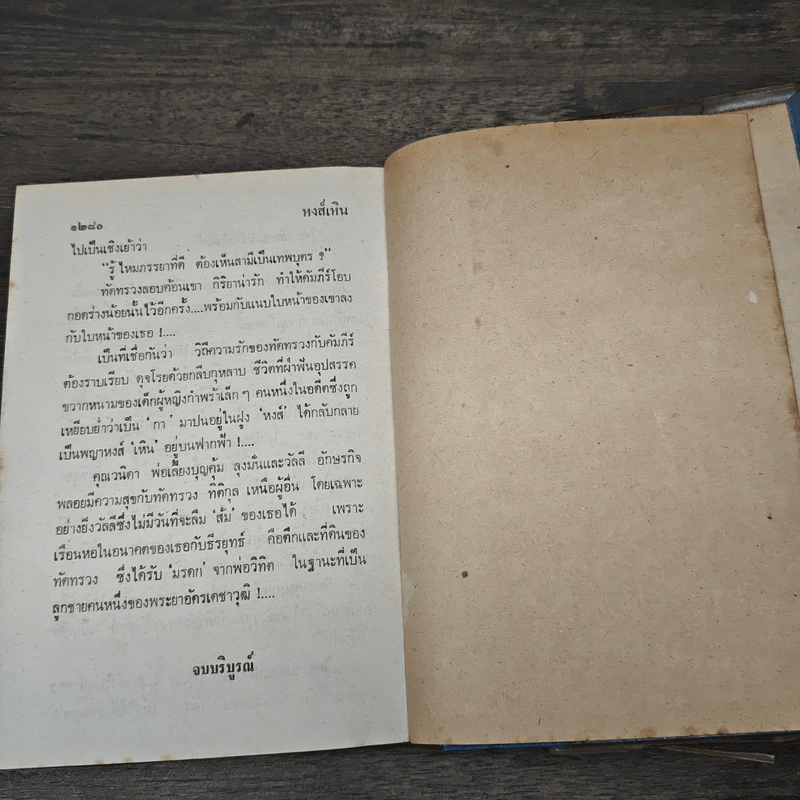 ๑๒๘๐ หงส์เหิน
ไปเป็นเชิงเย้าว่า
“รู้ไหมภรรยาที่ดี ต้องเห็นสามีเป็นเทพบุตร ?”
ทัดทรวงลอบค้อนเขา กิริยาน่ารัก ทำให้คัมภีร์โอบ
กอดร่างน้อยนั้นไว้อีกครั้ง....พร้อมกับแนบใบหน้าของเขาลง
กับใบหน้าของเธอ !....
เป็นที่เชื่อกันว่า วิถีความรักของทัดทรวงกับคัมภีร์
ต้องราบเรียบ ดุจโรยด้วยกลีบกุหลาบ ชีวิตที่ฝ่าฟันอุปสรรค
ขวากหนามของเด็กผู้หญิงกำพร้าเล็ก ๆ คนหนึ่งในอดีตซึ่งถูก
เหยียบย่ำว่าเป็น ‘กา’ มาปนอยู่ในฝูง ‘หงส์’ ได้กลับกลาย
เป็นพญาหงส์ ‘เหิน’ อยู่บนฟากฟ้า !....
คุณวนิดา พ่อเลี้ยงบุญคุ้ม ลุงมั่นและวัลลี อักษรกิจ
พลอยมีความสุขกับทัดทรวง ทิติกุล เหนือผู้อื่น โดยเฉพาะ
อย่างยิ่งวัลลีซึ่งไม่มีวันที่จะลืม ‘ส้ม’ ของเธอได้ เพราะ
เรือนหอในอนาคตของเธอกับธีรยุทธ์ คือตึกและที่ดินของ
ทัดทรวง ซึ่งได้รับ ‘มรดก’ จากพ่อวิทิต ในฐานะที่เป็น
ลูกชายคนหนึ่งของพระยาอัครเดชาวุฒิ !....
จบบริบูรณ์